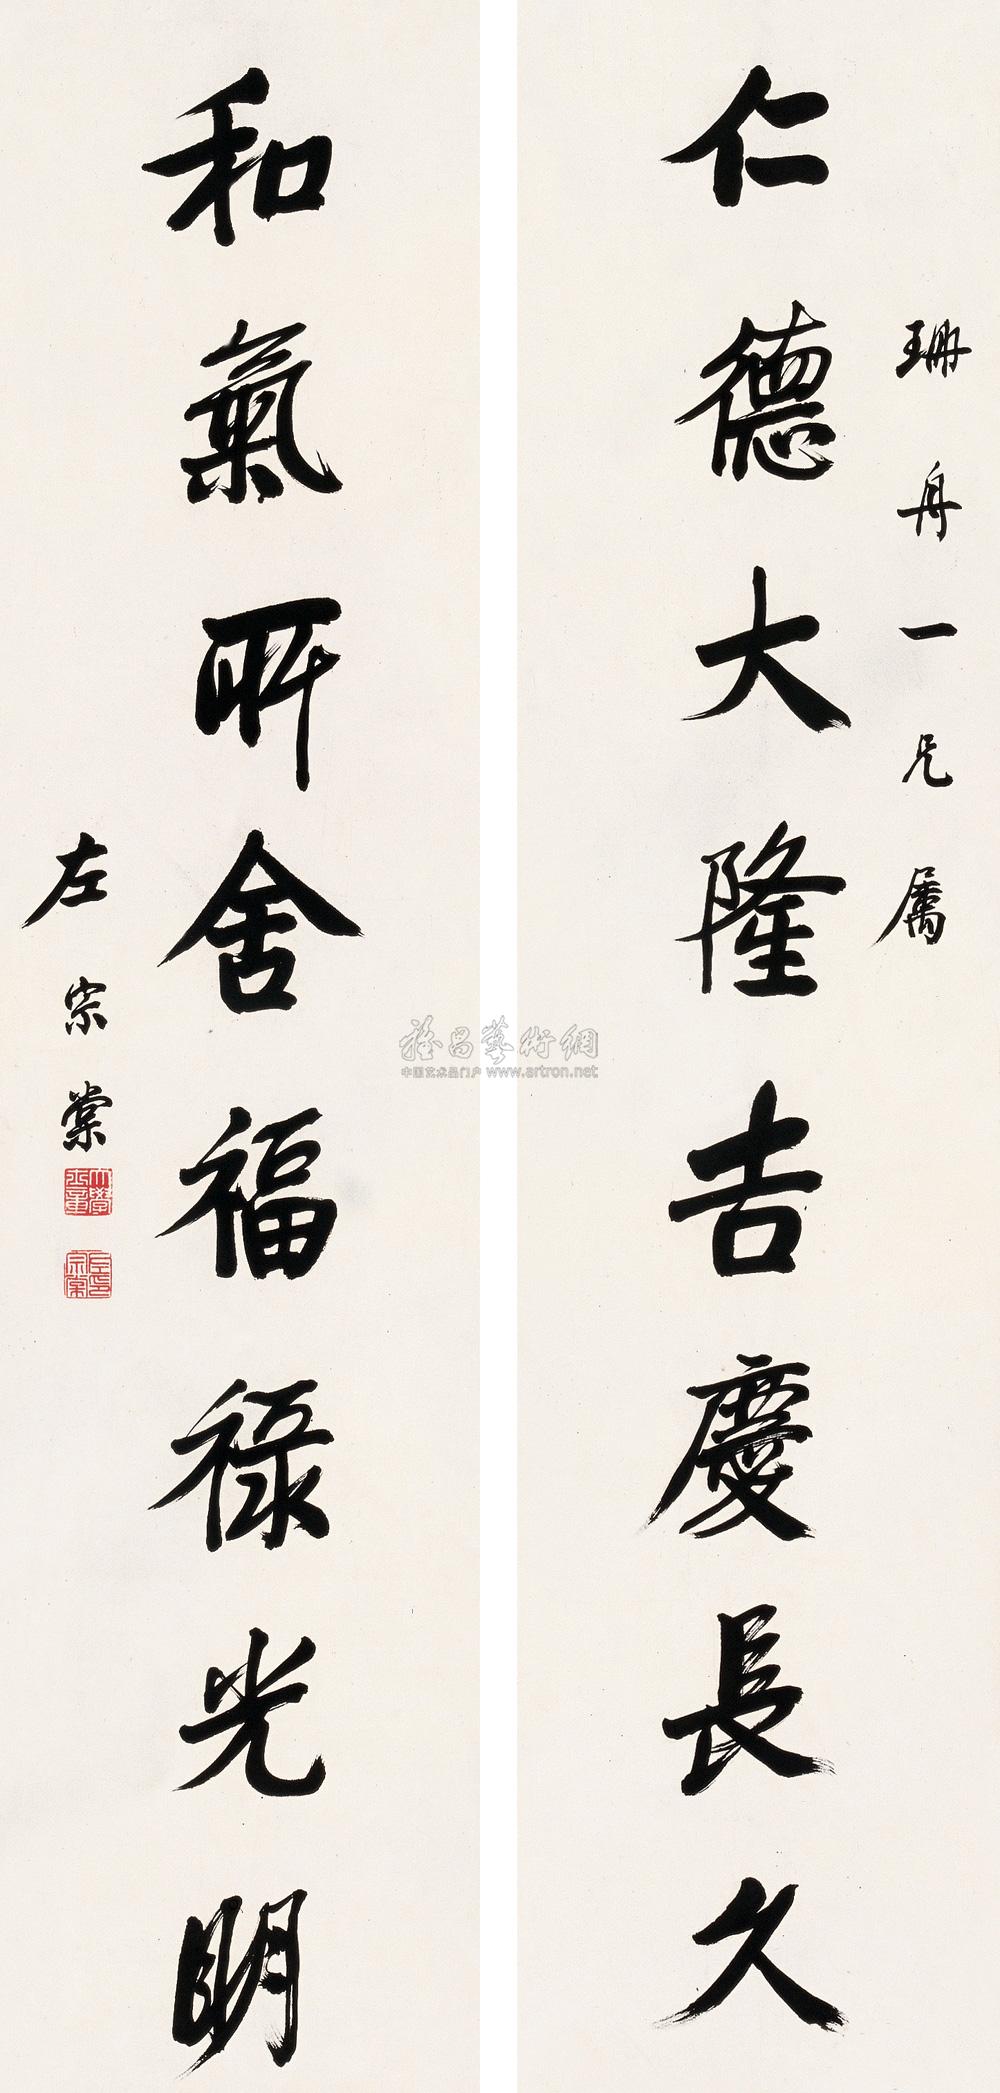 珊舟一兄属
仁德大隆吉慶長久
和氣所舍福禄光明
左宗棠
大學士章
左宗棠印
雅昌藝術網
中国艺术品门户 www.artron.net